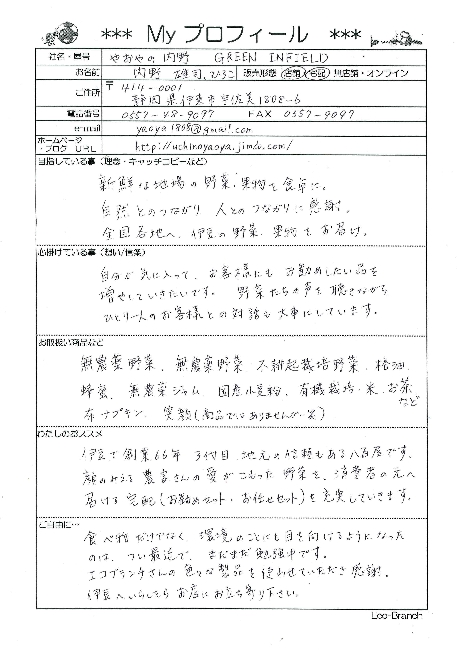 *** My プロフィール ***
社名・屋号 やおやの内野 GREEN INFIELD
お名前 内野 雄司、ひろこ 販売形態 店舗・宅配・卸店舗・オンライン
ご住所 〒414-0001
静岡県伊東市宇佐美1808-6
電話番号 0557-48-9097 FAX 0557-9097
e-mail yaoya1808@gmail.com
ホームページ
・ブログ URL http://uchinoyaoya.jimdo.com/
目指している事(理念・キャッチコピーなど)
新鮮な地場の野菜、果物を食卓に。
自然とのつながり 人とのつながりに感謝。
全国各地へ、伊豆の野菜、果物をお届け。
心掛けている事(想い/信条)
自分が気に入って、お客様にも お勧めしたい品を
増せしていきたいです。 野菜たちの声を聴きながら
ひとり一人のお客様との対話も大事にしています。
お取扱い商品など
無農薬野菜、無農薬野菜 不耕起栽培野菜、
蜂蜜、無農薬ジャム 国産小麦粉、有機栽培・米、お茶
など
布ナプキン、笑顔(商品ではありませんが・笑)
わたしのおススメ
伊豆で創業66年 3代目 地元の信頼もある八百屋です。
顔のみえる 農家さんの愛がこもった 野菜を、消費者の元へ
届ける 宅配(お勧めセット・お任せセット)を充実していきます。
ご自由に…
食べ物だけでなく、環境のことにも目を向けるようになった
のは、つい最近で、まだまだ勉強中です。
エコブランチさんの色々な製品を使わせていただき感謝。
伊豆へいらしたらお店にお立ち寄り下さい。
Leo-Branch